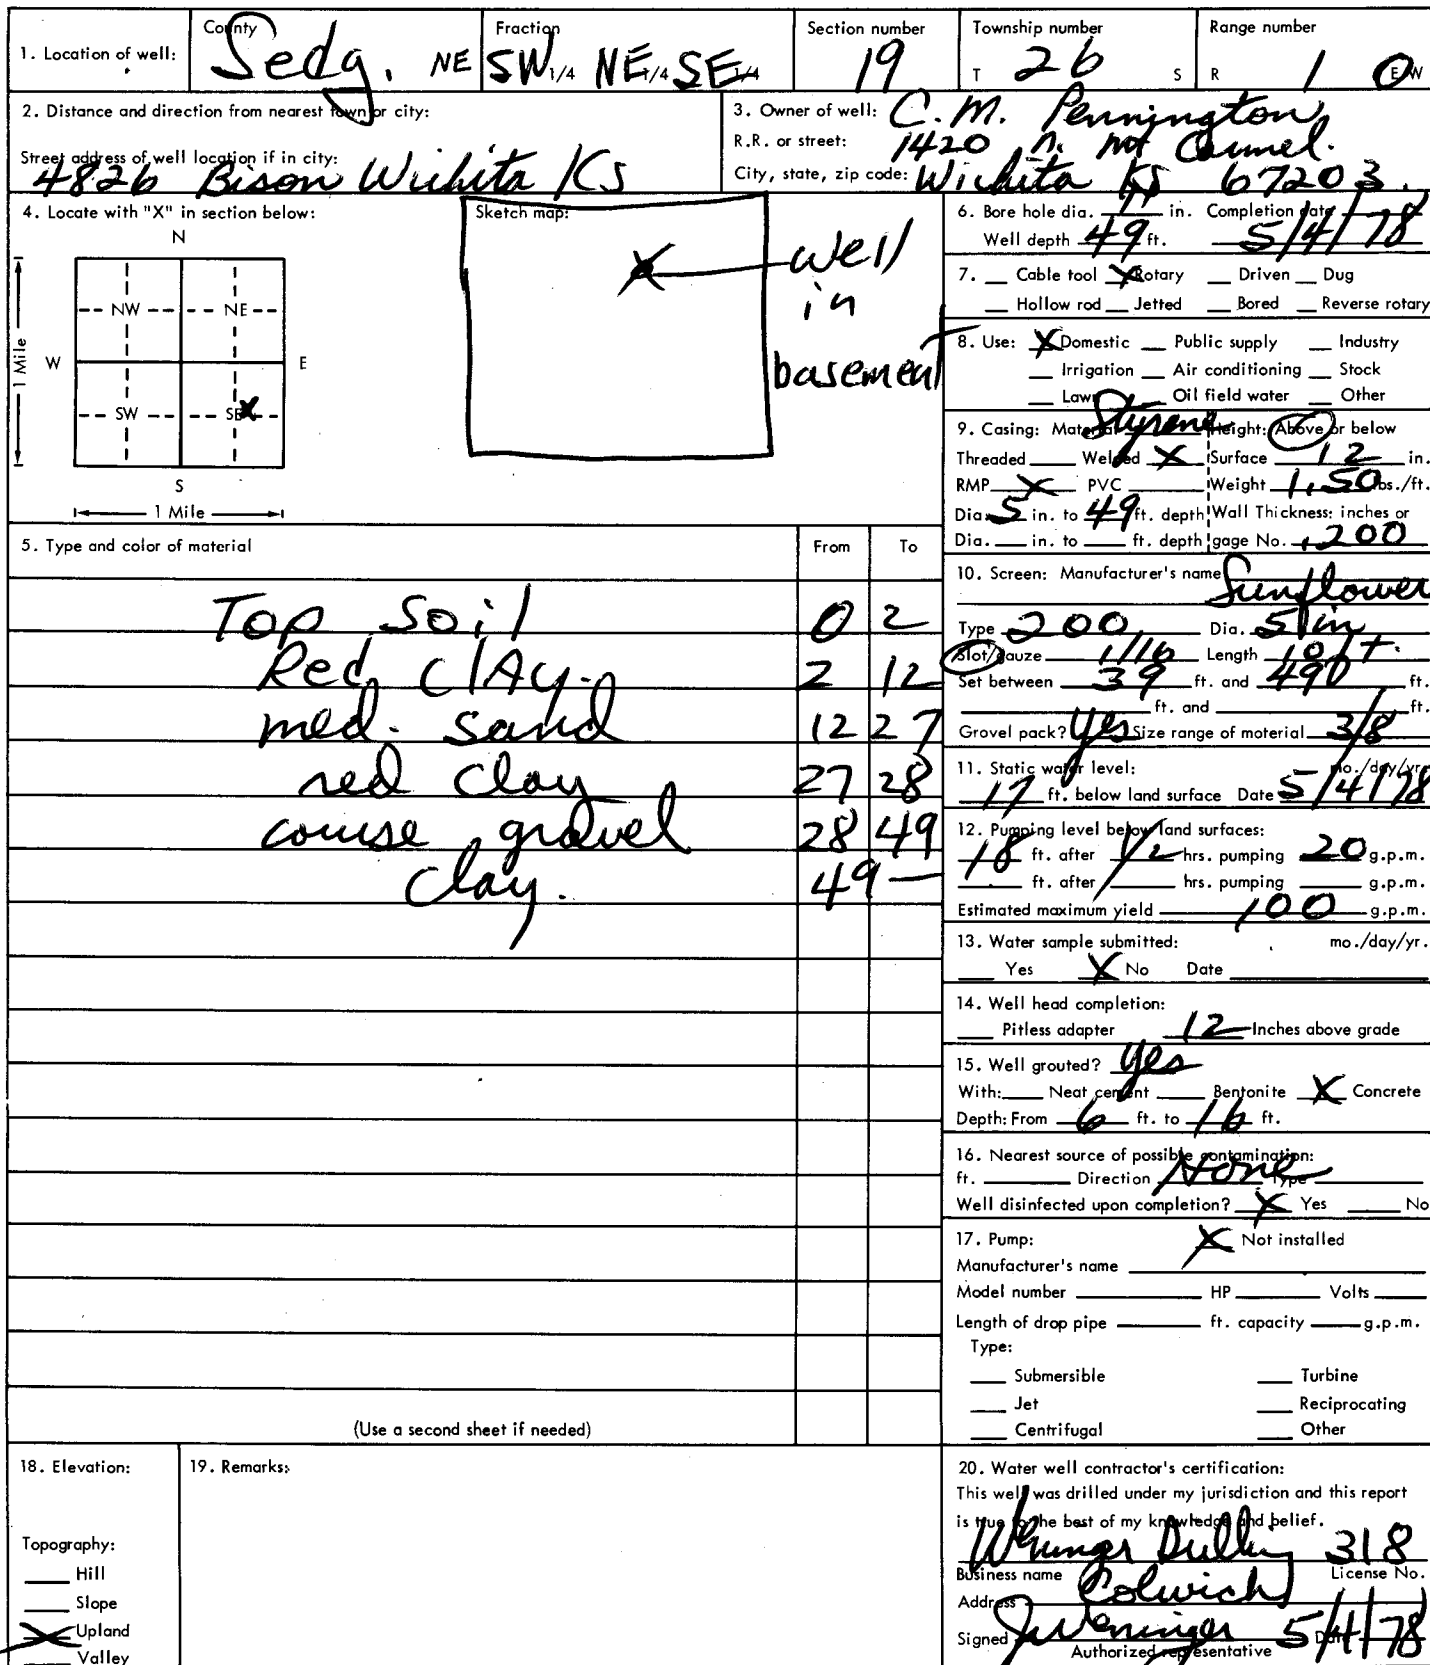 1. Location of well: County Sedg. Fraction NE SW 1/4 NE 1/4 SE 1/4 Section number 19 Township number T 26 S Range number R 1 E W
2. Distance and direction from nearest town or city:
Street address of well location if in city:
4826 Bison Wichita Ks
3. Owner of well: C.M. Pennington
R.R. or street: 1420 n. not Carmel.
City, state, zip code: Wichita Ks 67203.
4. Locate with "X" in section below:
N
NW NE
W E
SW SE X
S
1 Mile
1 Mile
Sketch map:
X well
in
basement
5. Type and color of material From To
Top Soil 0 2
Red Clay. 2 12
med. sand 12 27
red clay 27 28
course gravel 28 49
Clay. 49 —
(Use a second sheet if needed)
6. Bore hole dia. in. Completion date
Well depth 49 ft. 5/4/78
7. Cable tool X Rotary Driven Dug
Hollow rod Jetted Bored Reverse rotary
8. Use: X Domestic Public supply Industry
Irrigation Air conditioning Stock
Lawn Oil field water Other
9. Casing: Material Styrene Height: Above or below
Threaded Welded X Surface 12 in.
RMP X PVC Weight 1.50 lbs./ft.
Dia. 5 in. to 49 ft. depth Wall Thickness: inches or
Dia. in. to ft. depth gage No. .200
10. Screen: Manufacturer's name
Sunflower
Type 200 Dia. 5 in
Slot/gauze 1/16 Length 10 ft.
Set between 39 ft. and 49 ft.
ft. and ft.
Gravel pack? Yes Size range of material 3/8
11. Static water level: mo./day/yr.
17 ft. below land surface Date 5/4/78
12. Pumping level below land surfaces:
18 ft. after 1/2 hrs. pumping 20 g.p.m.
ft. after hrs. pumping g.p.m.
Estimated maximum yield 100 g.p.m.
13. Water sample submitted: mo./day/yr.
Yes X No Date
14. Well head completion:
Pitless adapter 12 Inches above grade
15. Well grouted? yes
With: Neat cement Bentonite X Concrete
Depth: From 6 ft. to 16 ft.
16. Nearest source of possible contamination:
ft. Direction None Type
Well disinfected upon completion? X Yes No
17. Pump: X Not installed
Manufacturer's name
Model number HP Volts
Length of drop pipe ft. capacity g.p.m.
Type:
Submersible Turbine
Jet Reciprocating
Centrifugal Other
18. Elevation:
Topography:
Hill
Slope
X Upland
Valley
19. Remarks:
20. Water well contractor's certification:
This well was drilled under my jurisdiction and this report
is true to the best of my knowledge and belief.
Weninger Drilling 318
Business name License No.
Address Colwich
Signed J Weninger Date 5/4/78
Authorized representative